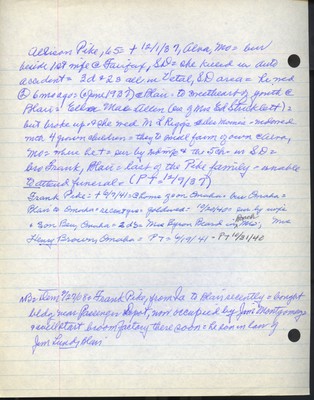 Allison Pike, 65 = † 12/1/37, Alva, Mo = bur
beside 1st wife @ Fairfax, SD = she killed in auto
accident = 3d & 2s all in Vetal, SD area = he md
② 6 mo ago (June 1937) @ Blair = to sweetheart of youth @
Blair = Mae Allen
but broke up & she md M L Riggs & like Minnie = returned
with 4 grown children = they to small farm of own @ Alva,
Mo = where he † = sur by 2nd wife & the 5 ch in SD =
bro Frank, Blair = last of the Pike family = unable
to attend funeral = (PT = 12/9/37)
Frank Pike = † 4/9/41 @ home N of Omaha = bur Omaha =
Blair to Omaha = recent yrs = goldwed = 12/20/40 = sur by wife
& son Ben, Omaha = 2 ds = Mrs Byron Beard, Mo; Mrs
Henry Brown, Omaha = PT = 4/9/41 - PT 12/21/40
NB = Item = Frank Pike, from Ia to Blair recently = bought
bldg near Passenger Depot, now occupied by Jim Montgomery
& will start broom factory there soon = he son in law of
Jim Lundy, Blair